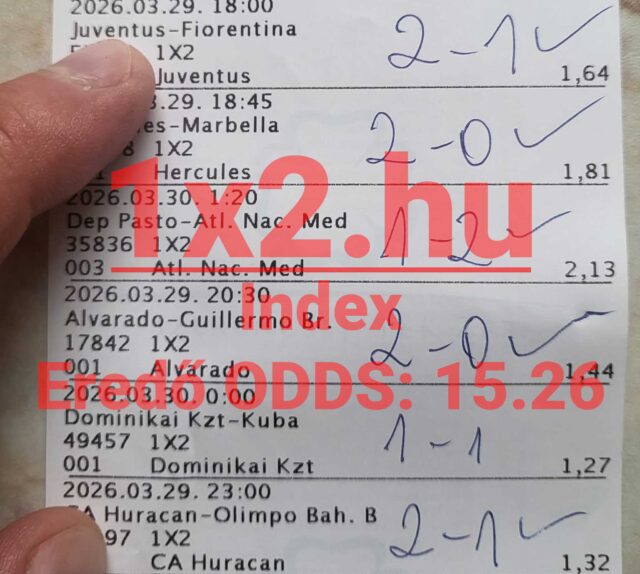 2026.03.29. 18:00
Juventus-Fiorentina 2-1
1X2
Juventus 1,64
3.29. 18:45
es-Marbella 2-0
8 1X2
Hercules 1,81
1x2.hu
2026.03.30. 1:20
Dep Pasto-Atl. Nac. Med 1-2
35836 1X2
003 Atl. Nac. Med 2,13
Index
2026.03.29. 20:30
Alvarado-Guillermo Br. 2-0
17842 1X2
001 Alvarado 1,44
Eredő ODDS: 15.26
2026.03.30. 0:00
Dominikai Kzt-Kuba 1-1
49457 1X2
001 Dominikai Kzt 1,27
2026.03.29. 23:00
CA Huracan-Olimpo Bah. B 2-1
97 1X2
CA Huracan 1,32